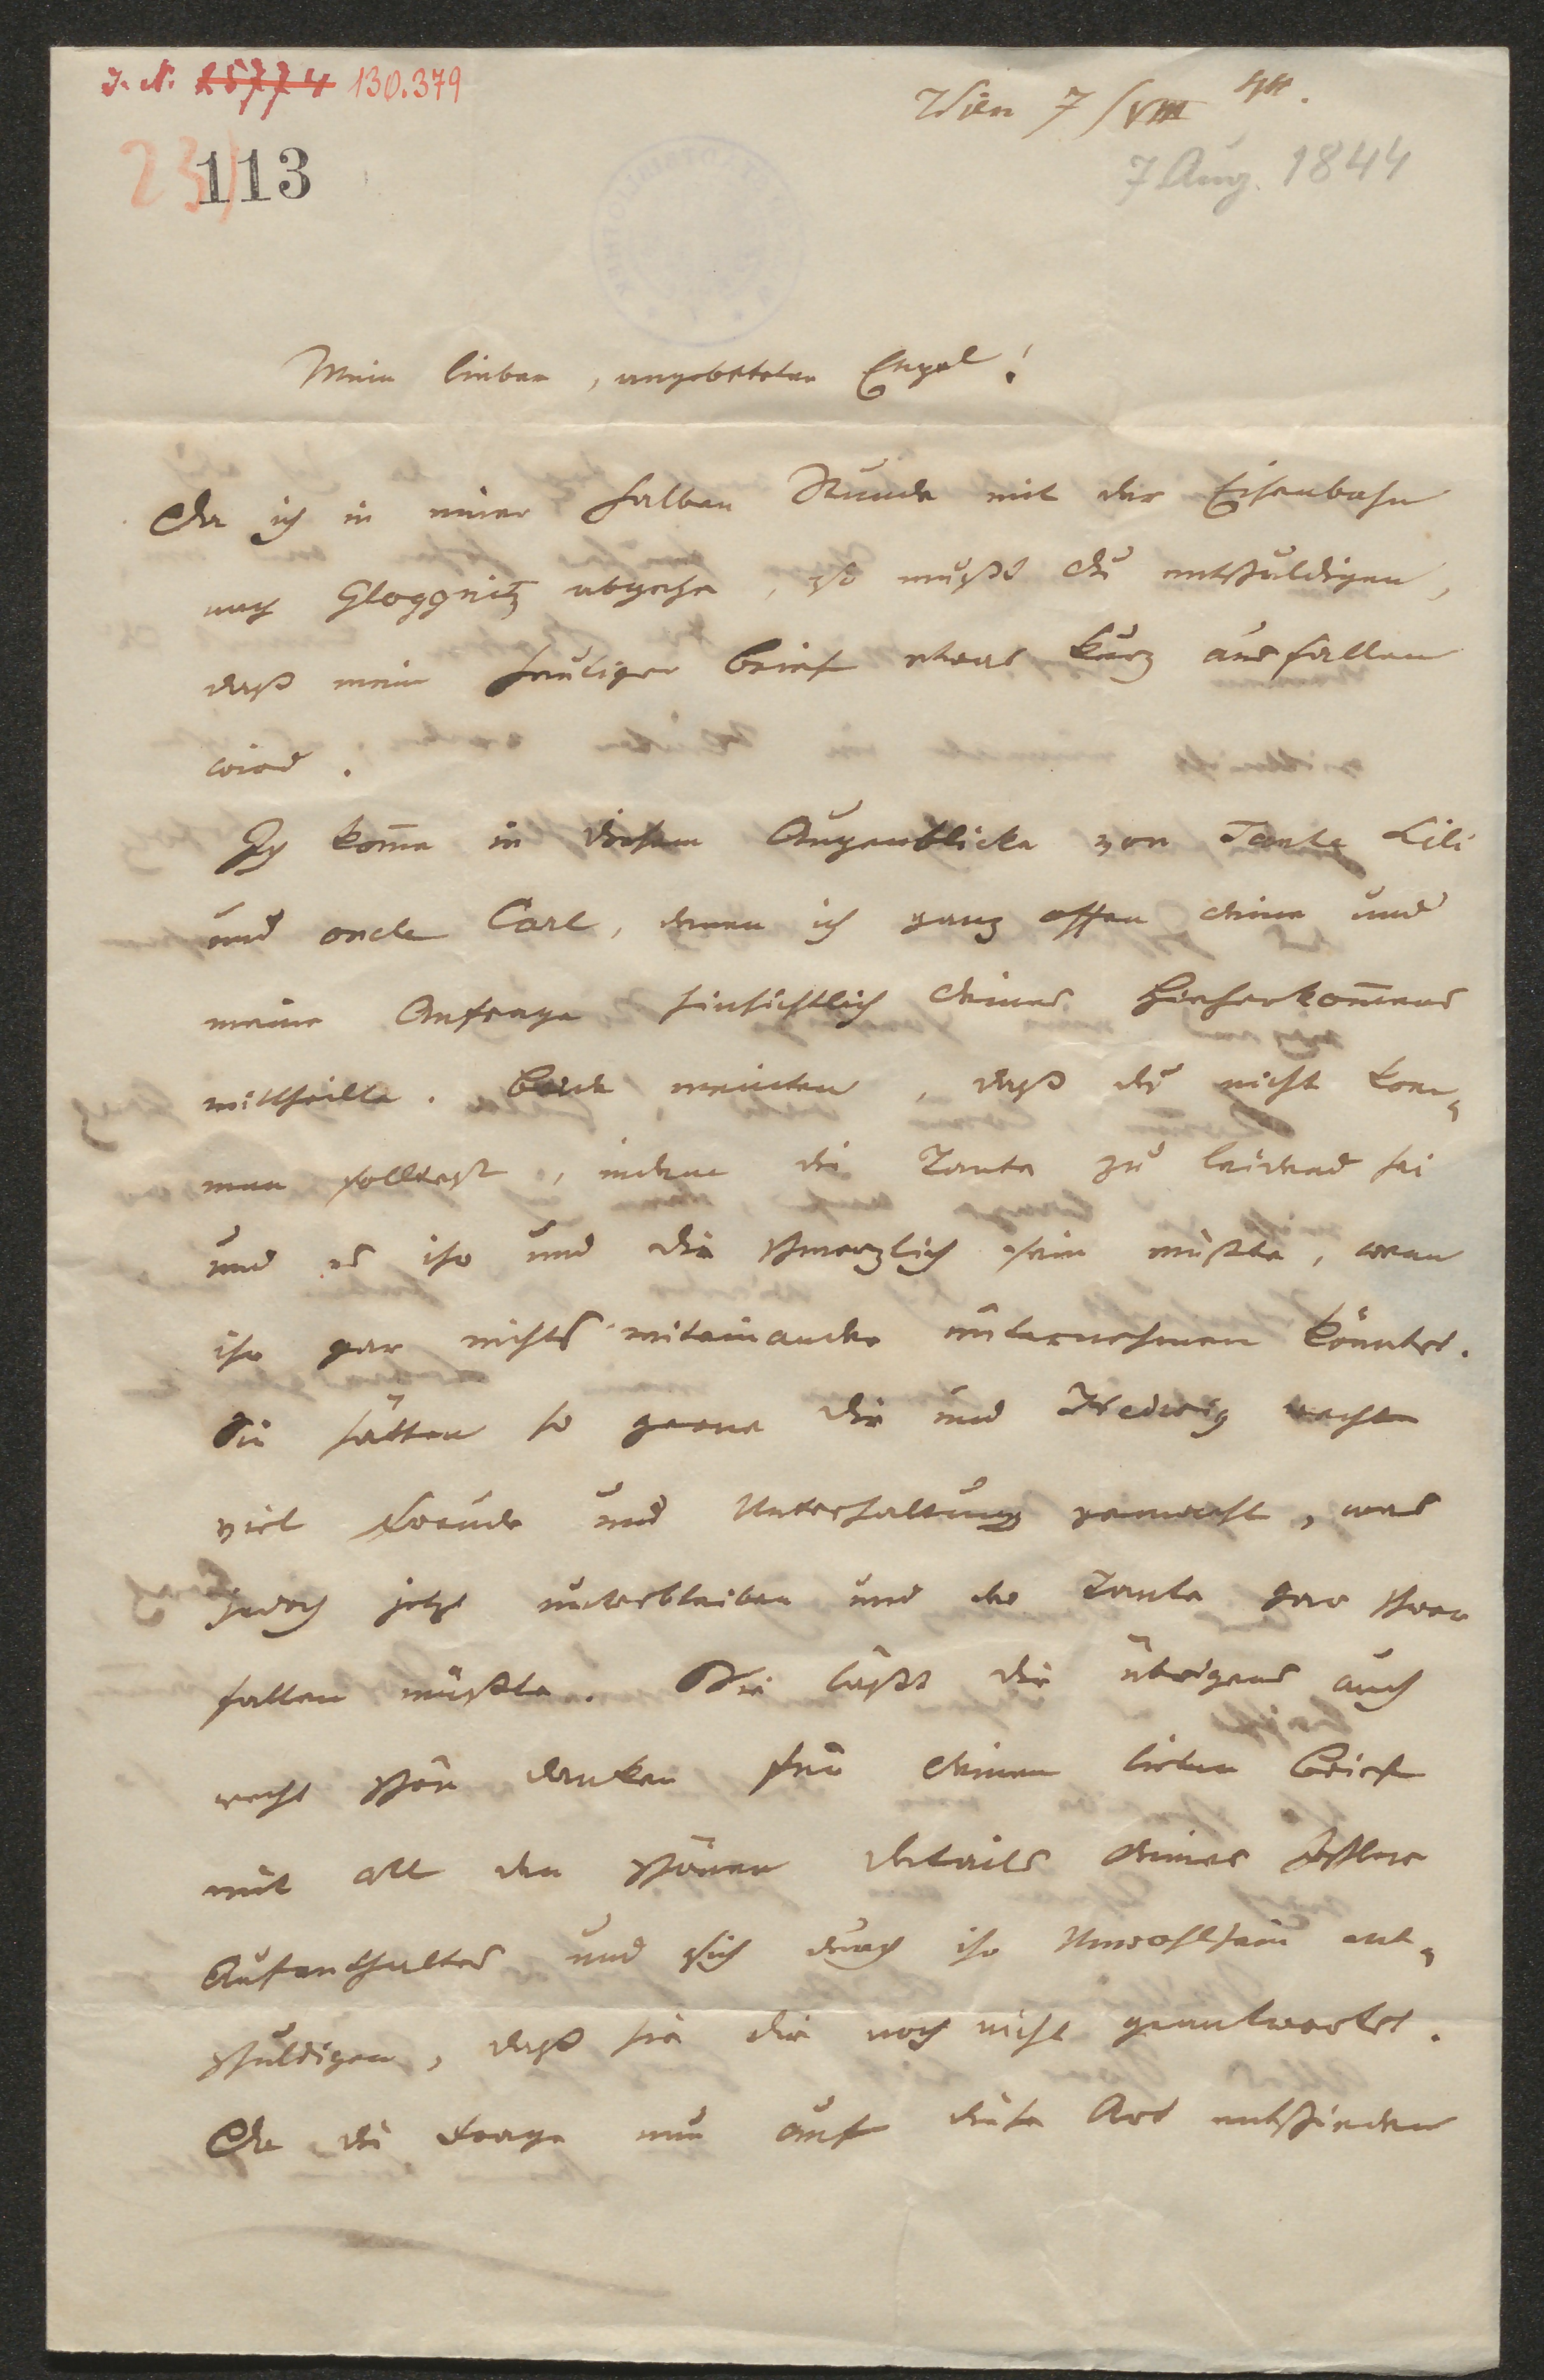 I. N. 25774 130.379
Wien 7/VIII 44.
23)
113
7 Aug. 1844
Mein lieber, angebeteter Engel!
Da ich in einer halben Stunde mit der Eisenbahn
nach Gloggnitz abgehe, so mußt du entschuldigen,
daß mein heutiger Brief etwas kurz ausfallen
wird.
Ich kom̄e in diesem Augenblicke von Tante Lili
und oncle Carl, denen ich ganz offen deine und
meine Anfrage hinsichtlich deines Hieherkom̄ens
mittheilte. Beide meinten, daß du nicht kom-
men solltest, indem die Tante zu leidend sei
und es ihr und dir schmerzlich sein müßte, wenn
ihr gar nichts miteinander unternehmen könntet.
Sie hätten so gerne dir und Hedwig recht
viel Freude und Unterhaltung gemacht, was
jedoch jetzt unterbleiben und der Tante gar schwer
fallen müßte. Sie läßt dir übrigens auch
recht schön danken für deinen lieben Brief
mit all den schönen details deines Ischler
Aufenthaltes und sich durch ihr Unwohlsein ent-
schuldigen, daß sie dir noch nicht geantwortet.
Da die Frage nun auf diese Art entschieden